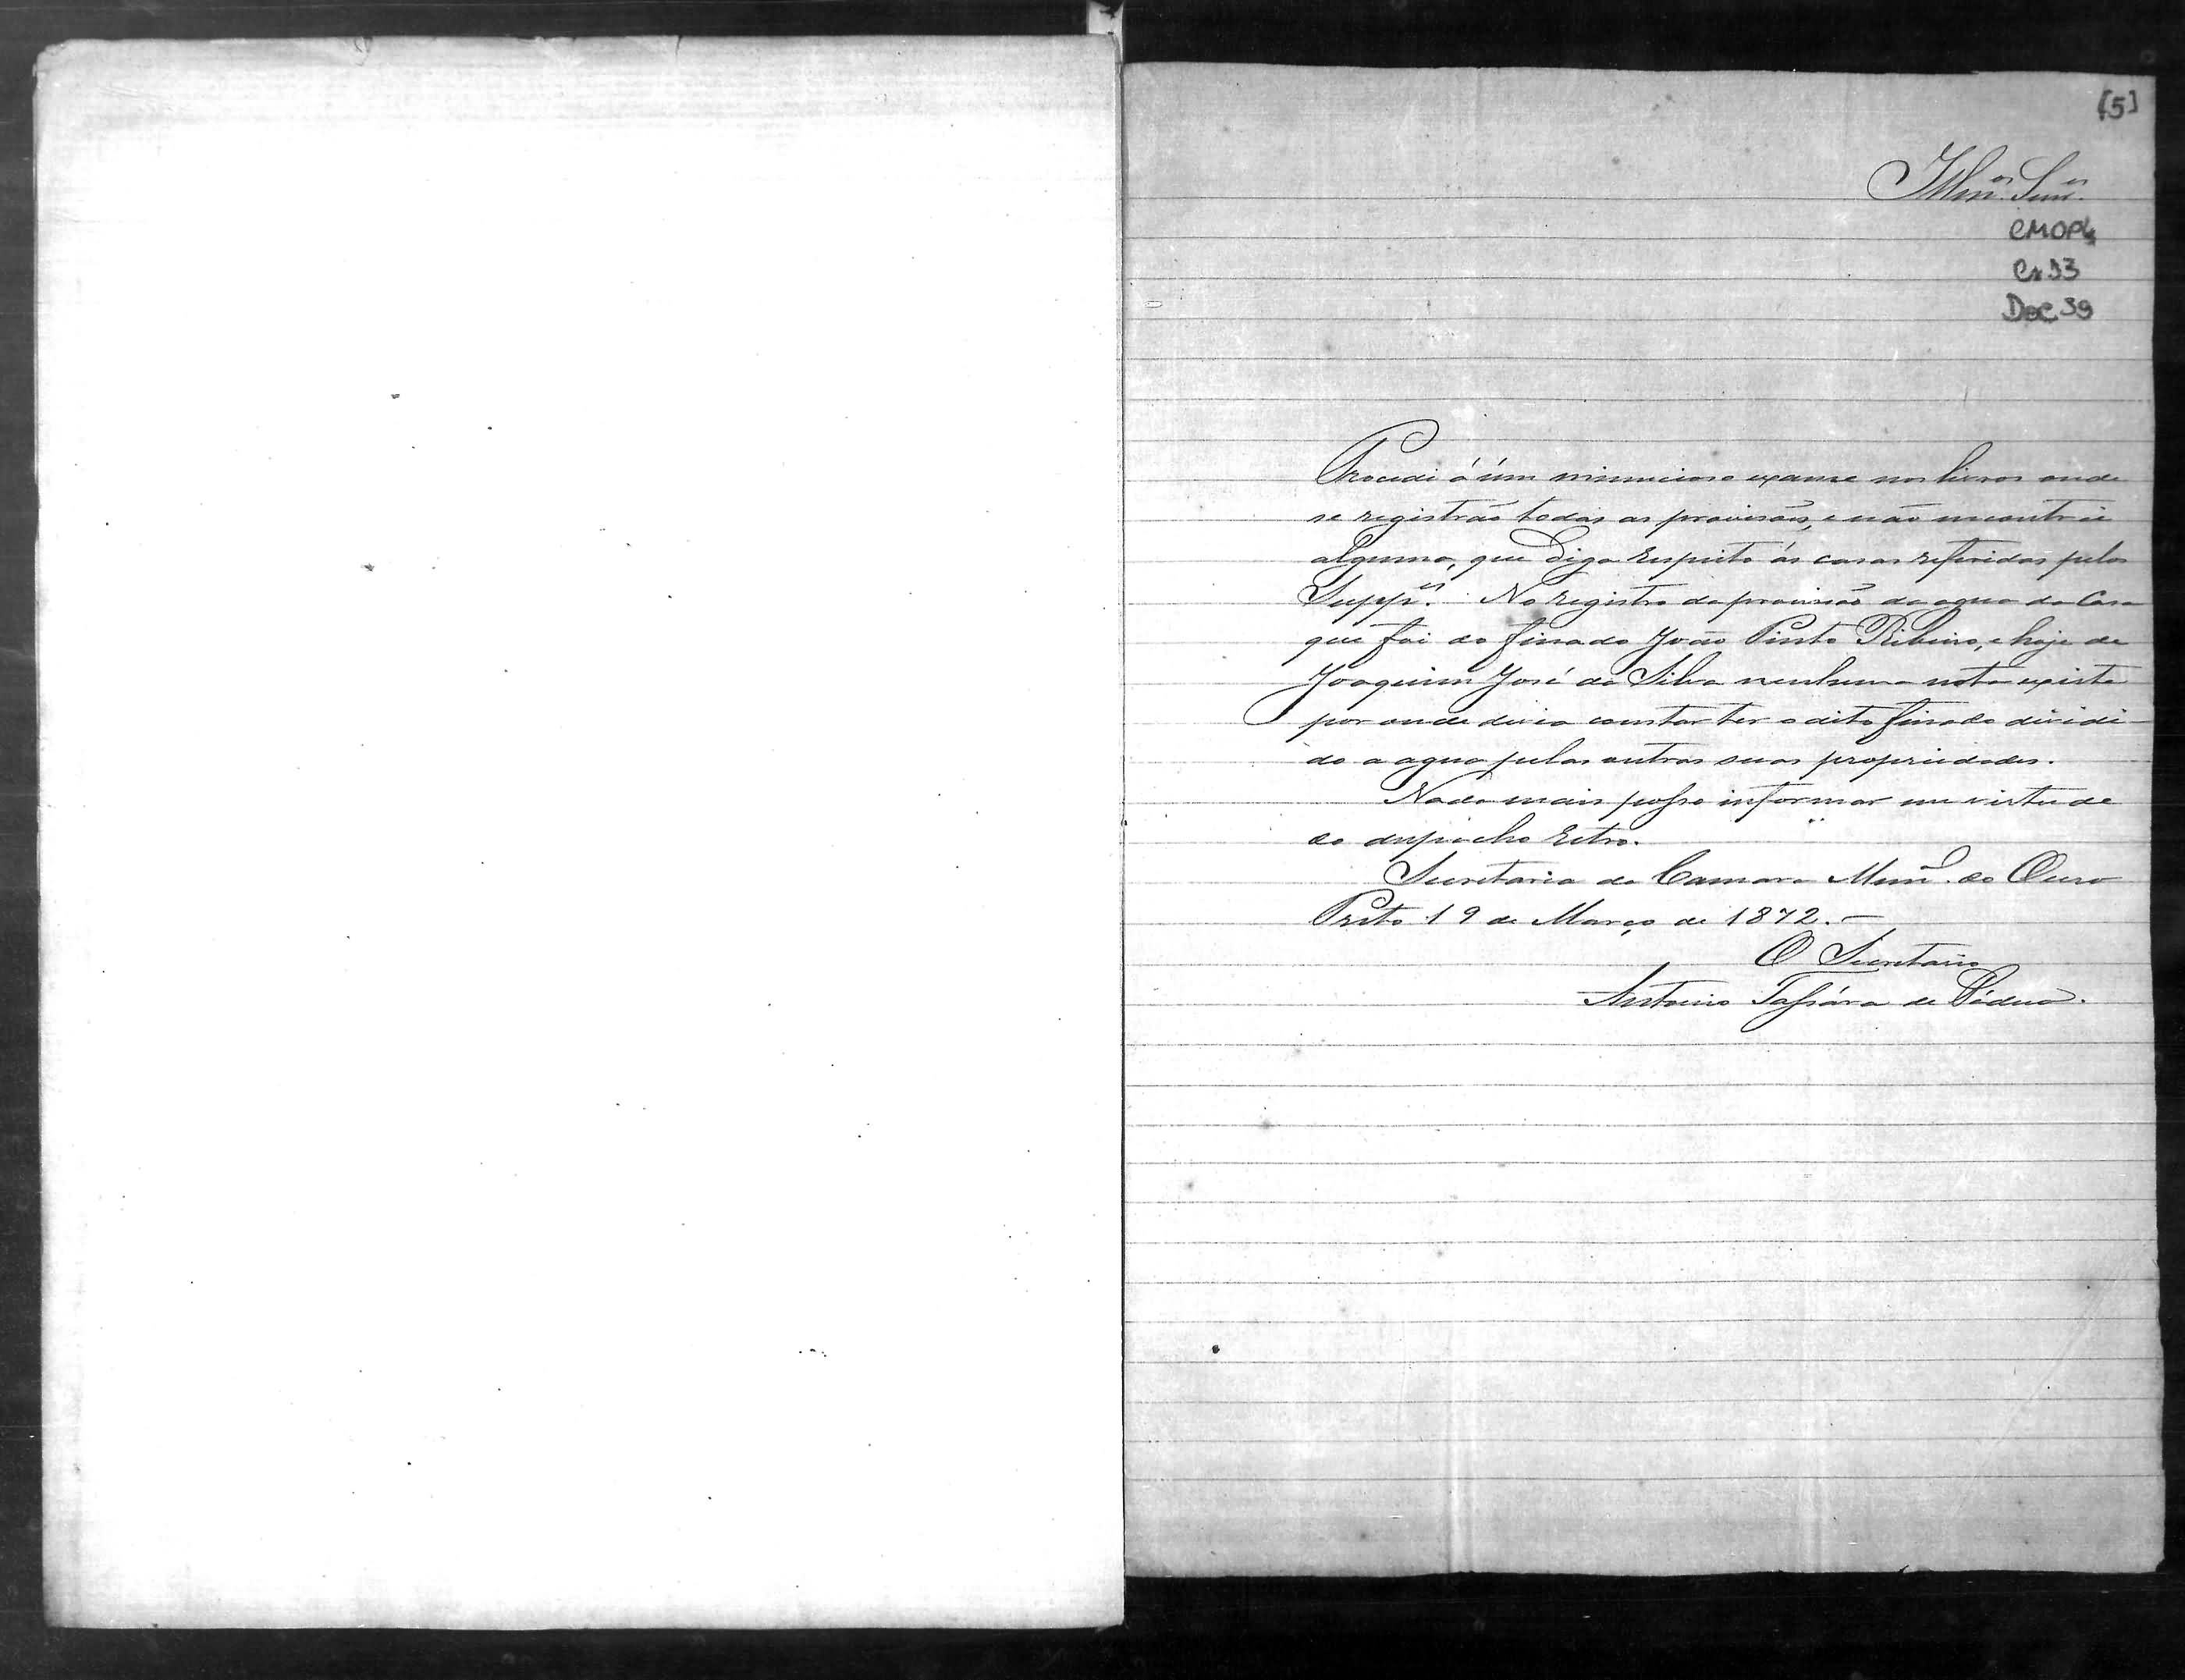 [5]
Illm.os Snr.es
CMOP
Cx 93
Doc 39
Procedi á úm minucioso exame nos livros onde
se registrão todas as provisões, e não encontrei
alguma, que diga respeito ás casas referidas pelos
Supp.es. No registro da provisão da agua da Casa
que foi do finado João Pinto Ribeiro, e hoje de
Joaquim José da Silva nenhuma nota existe
por onde devia constar ter o dito finado dividi-
do a agua pelas outras suas propriedades.
Nada mais posso informar em virtude
do despacho retro.
Secretaria da Camara Mun.l do Ouro
Preto 19 de Março de 1872.-
O Secretario
Antonio Tassára de Pádua.